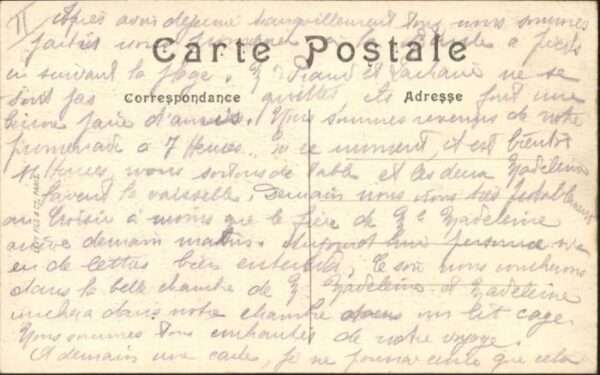 II Après avoir déjeuné tranquillement tous nous sommes
partis nous promener à la à pieds
Carte Postale
en suivant la plage. et ne se
Correspondance
Adresse
sont pas quittés ils font une
paire d'amies. Nous sommes revenus de notre
promenade à 7 Heures. En ce moment, il est bientôt
11 Heures, nous sortons de table et les deux Madeleine
lavent la vaisselle. Demain nous irons très probablement
au Croisic à moins que le père de Madeleine
arrive demain matin. Aujourd'hui personne n'a
eu de lettres bien entendu. Le soir nous coucherons
dans la belle chambre de Madeleine et Madeleine
couchera dans notre chambre dans un lit cage.
Nous sommes tous enchantés de notre voyage.
A demain une carte, je ne pourrai que cela